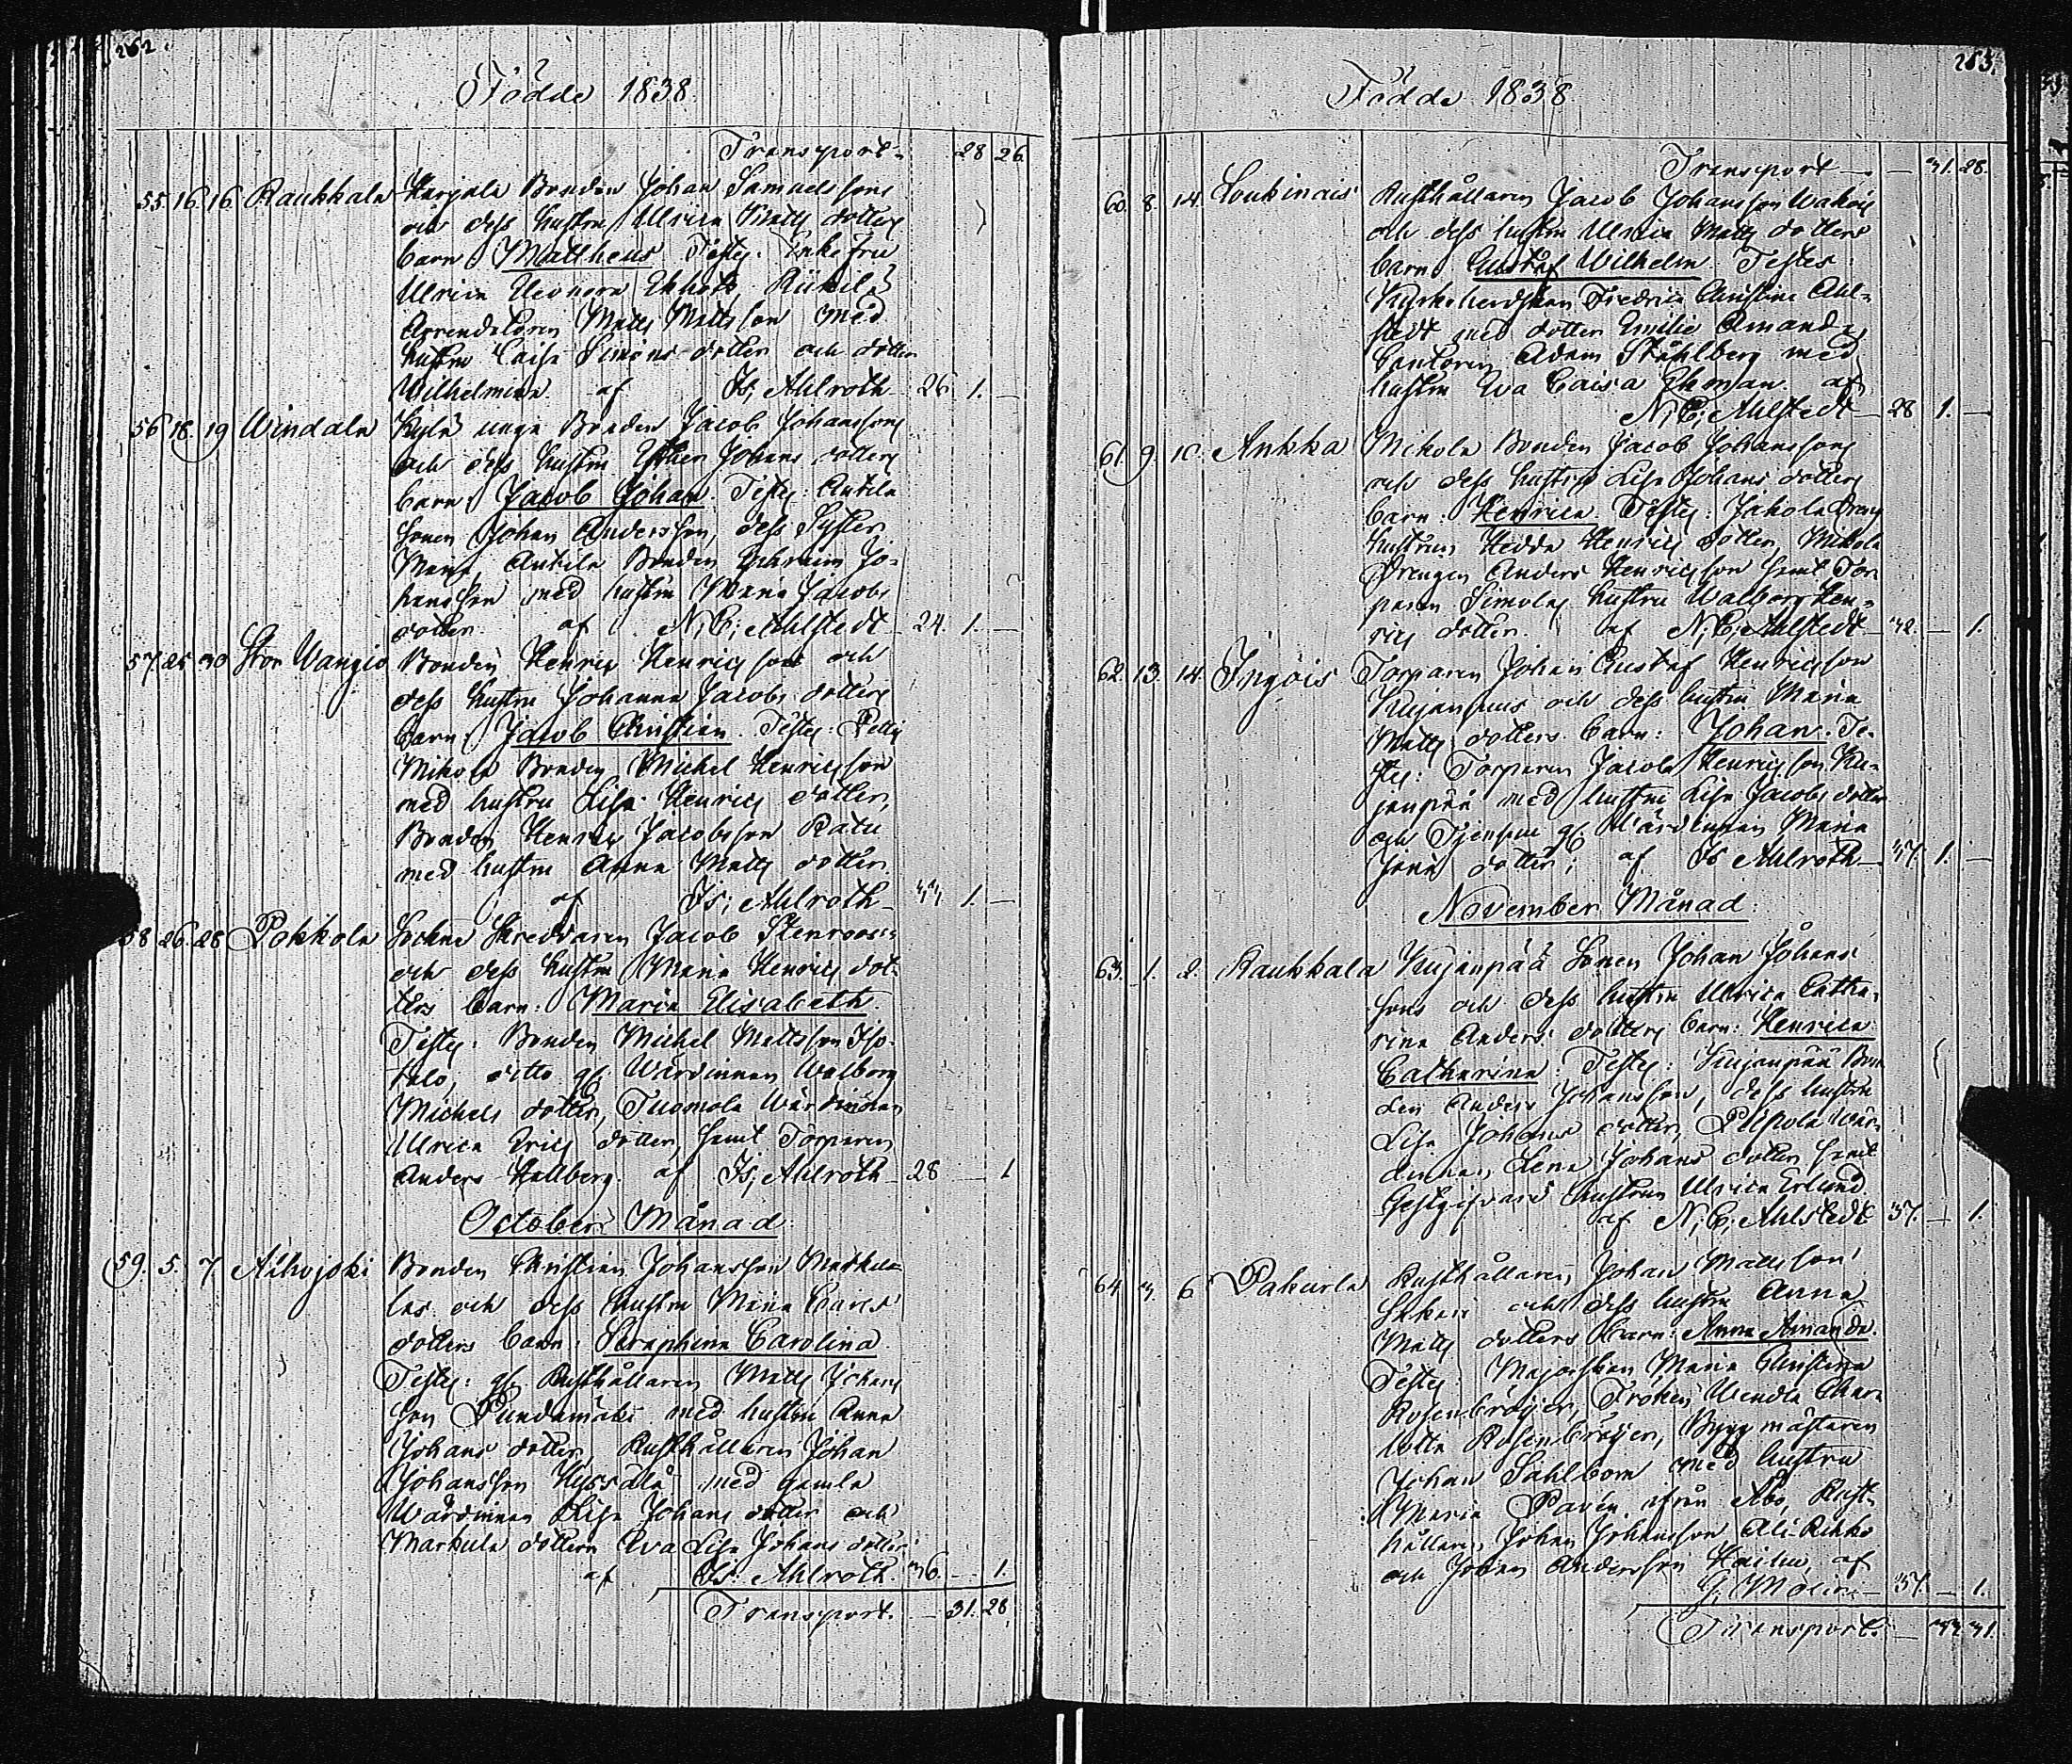 262
Födde 1838.
Transport 28 26
55. 16. 16 Raukkala Karjala Bonden Johan Samuelssons
och dess hustru Ulrica Matts dotters
barn Mattheus Testes: Enke fru
Ulrica Eleonora Ekholt Riikilä
Arrendatoren Matts Mattsson med
hustru Caisa Simons dotter och dotter
Wilhelmina. af Is; Ahlroth 26. 1. —
56 18. 19 Windala Kylä unge Bonden Jacob Johanssons
och dess hustru Esther Johans dotters
barn: Jacob Johan. Testes: Antila
sonen Johan Andersson, dess Syster
Maria, Antila Bonden Ephraim Jo-
hansson med hustru Maria Jacobs
dotter. af N; C; Ahlstedt 24. 1. —
57. 25 30 Stor Wangio Bonden Henric Henricssons och
dess hustru Johanna Jacobs dotters
barn: Jacob Christian. Testes:
Mikola Bonden Michel Henricsson
med hustru Lisa Henrics dotter,
Bonden Henric Jacobsson Ratu
med hustru Anna Matts dotter.
af Is; Ahlroth 44 1. —
58 26. 28 Pokkola Sockne Skreddaren Jacob Stenroos
och dess hustru Maria Henrics dot-
ters barn: Maria Elisabeth.
Testes: Bonden Michel Mattsson Iso-
talo, ditto gl Wärdinnan Walborg
Michels dotter, Tuomola Wärdinnan
Ulrica Erics dotter, samt Torparen
Anders Hallberg af Is; Ahlroth 28 — 1
October Månad.
59. 5. 7. Bonden Christian Johansson Markula-
las och dess hustru Maria Carls
dotters barn: Seraphina Carolina.
Testes: gl Rusthållaren Matts Johans
son med hustru Anna
Johans dotter, Rusthållaren Johan
Johansson med gamla
Wärdinnan Lisa Johans dotter och
Markula dottern Eva Lisa Johans dotter
af Is. Ahlroth 36. — 1.
Transport. — 31. 28
263.
Födde 1838.
Transport — 31. 28.
60. 8. 14. Loukinais Rusthållaren Jacob Johansson
och dess hustru Ulrica Matts dotters
barn Gustaf Wilhelm. Testes:
Kyrkoherdskan Fredrica Christina Ahl-
stedt med dotter Emilie Amanda,
Cantoren Adam Ståhlberg med
hustru Eva Caisa Ekman. af
N; C; Ahlstedt 28 1. —
61. 9. 10. Ankka Mikola Bonden Jacob Johanssons
och dess hustru Lisa Johans dotters
barn: Henrica. Testes: Jakola Dreng
hustrun Hedda Henrics dotter, Mikola
Drengen Anders Henricsson samt Tor-
paren Simolas hustru Walborg Hen-
rics dotter. af N; C; Ahlstedt 32. — 1.
62. 13. 14. Injois Torparen Johan Gustaf Henricsson
Kujanpääs och dess hustru Maria
Matts dotters barn: Johan. Te-
stes: Torparen Jacob Henricsson Ku-
janpää med hustru Lisa Jacobs dotter
och gl Wärdinnan Maria
dotter; af Is Ahlroth 37. 1. —
November Månad.
63. 1. 2. Raukkala Kujanpää Sonen Johan Johans
sons och dess hustru Ulrica Catha-
rina Anders dotters barn: Henrica
Catharina. Testes: Kujanpää Bon
den Anders Johansson, dess hustru
Lisa Johans dotter, Wär-
dinnan Lena Johans dotter samt
Gestgifvare hustrun Ulrica Erlund
af N; C; Ahlstedt 37. — 1.
64 3. 6 Pakurla Rusthållaren Johan Mattsson
och dess hustru Anna
Matts dotters barn: Anna Amanda.
Testes: Majorskan Maria Christina
Rosenbröijer, Fröken Wendla Char-
lotta Rosenbröijer, Byggmästaren
Johan Sahlbom med hustru
Maria Pavén ifrån Åbo, Rust-
hållaren Johan Johansson
och Johan Andersson af
G; Molin — 37. — 1.
Transport — 33. 31.